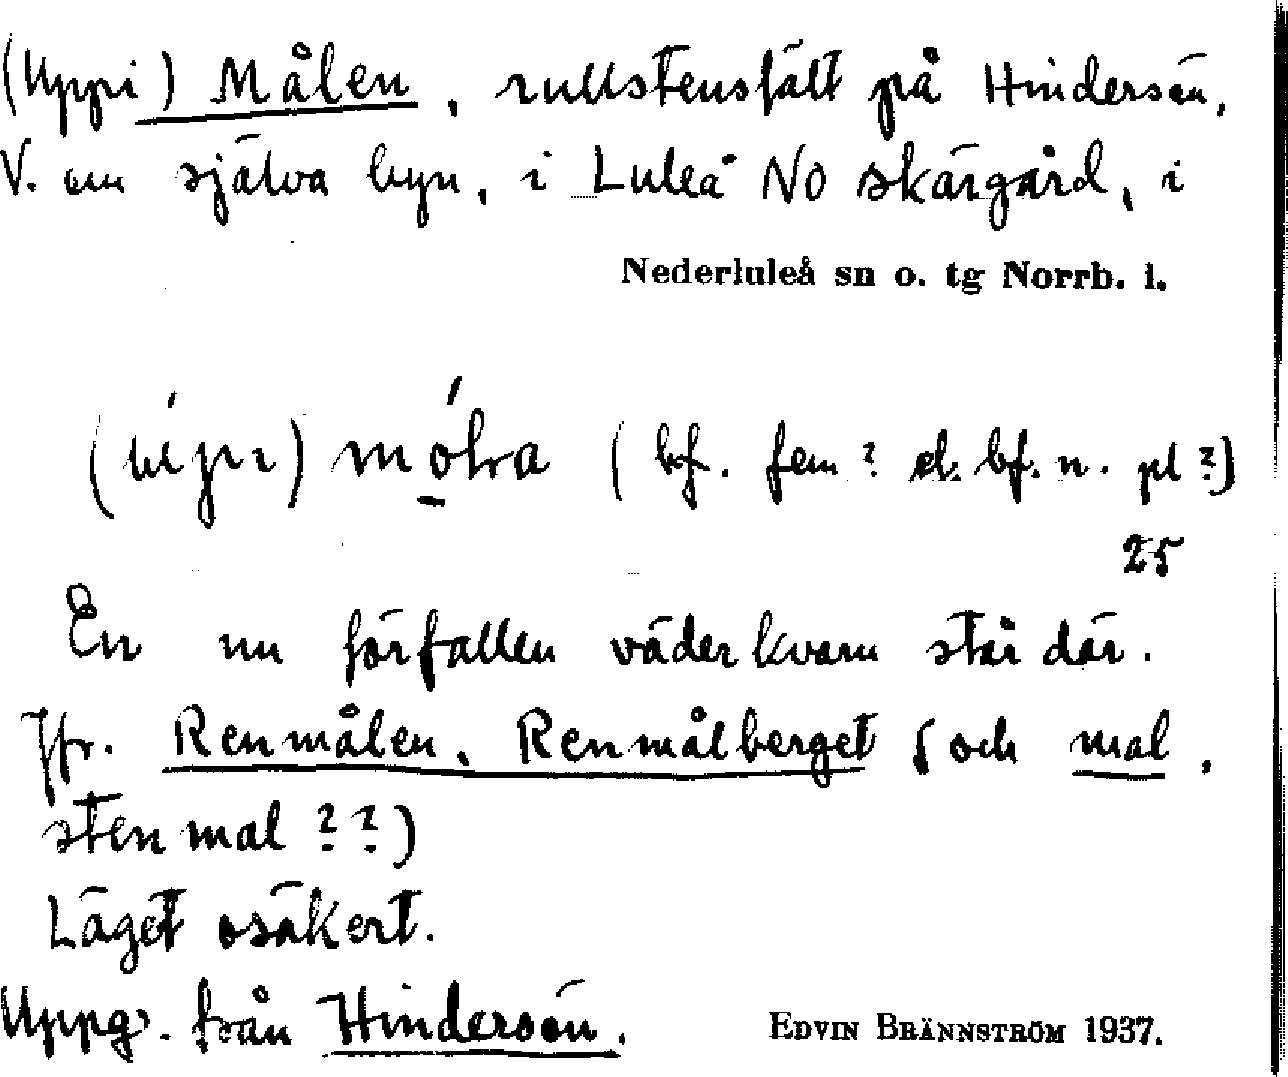 (Uppi) Målen, rullstensfält på Hindersön,
V. om själva byn, i Luleå NO skärgård, i
Nederluleå sn o. tg Norrb. l.
(bf. fem? el. bf. n. pl?)
25
En nu förfallen väderkvarn står där.
Jfr. Renmålen, Renmålberget (och mal,
stenmal??)
Läget osäkert.
Uppg. från Hindersön.
EDVIN BRÄNNSTRÖM 1937.